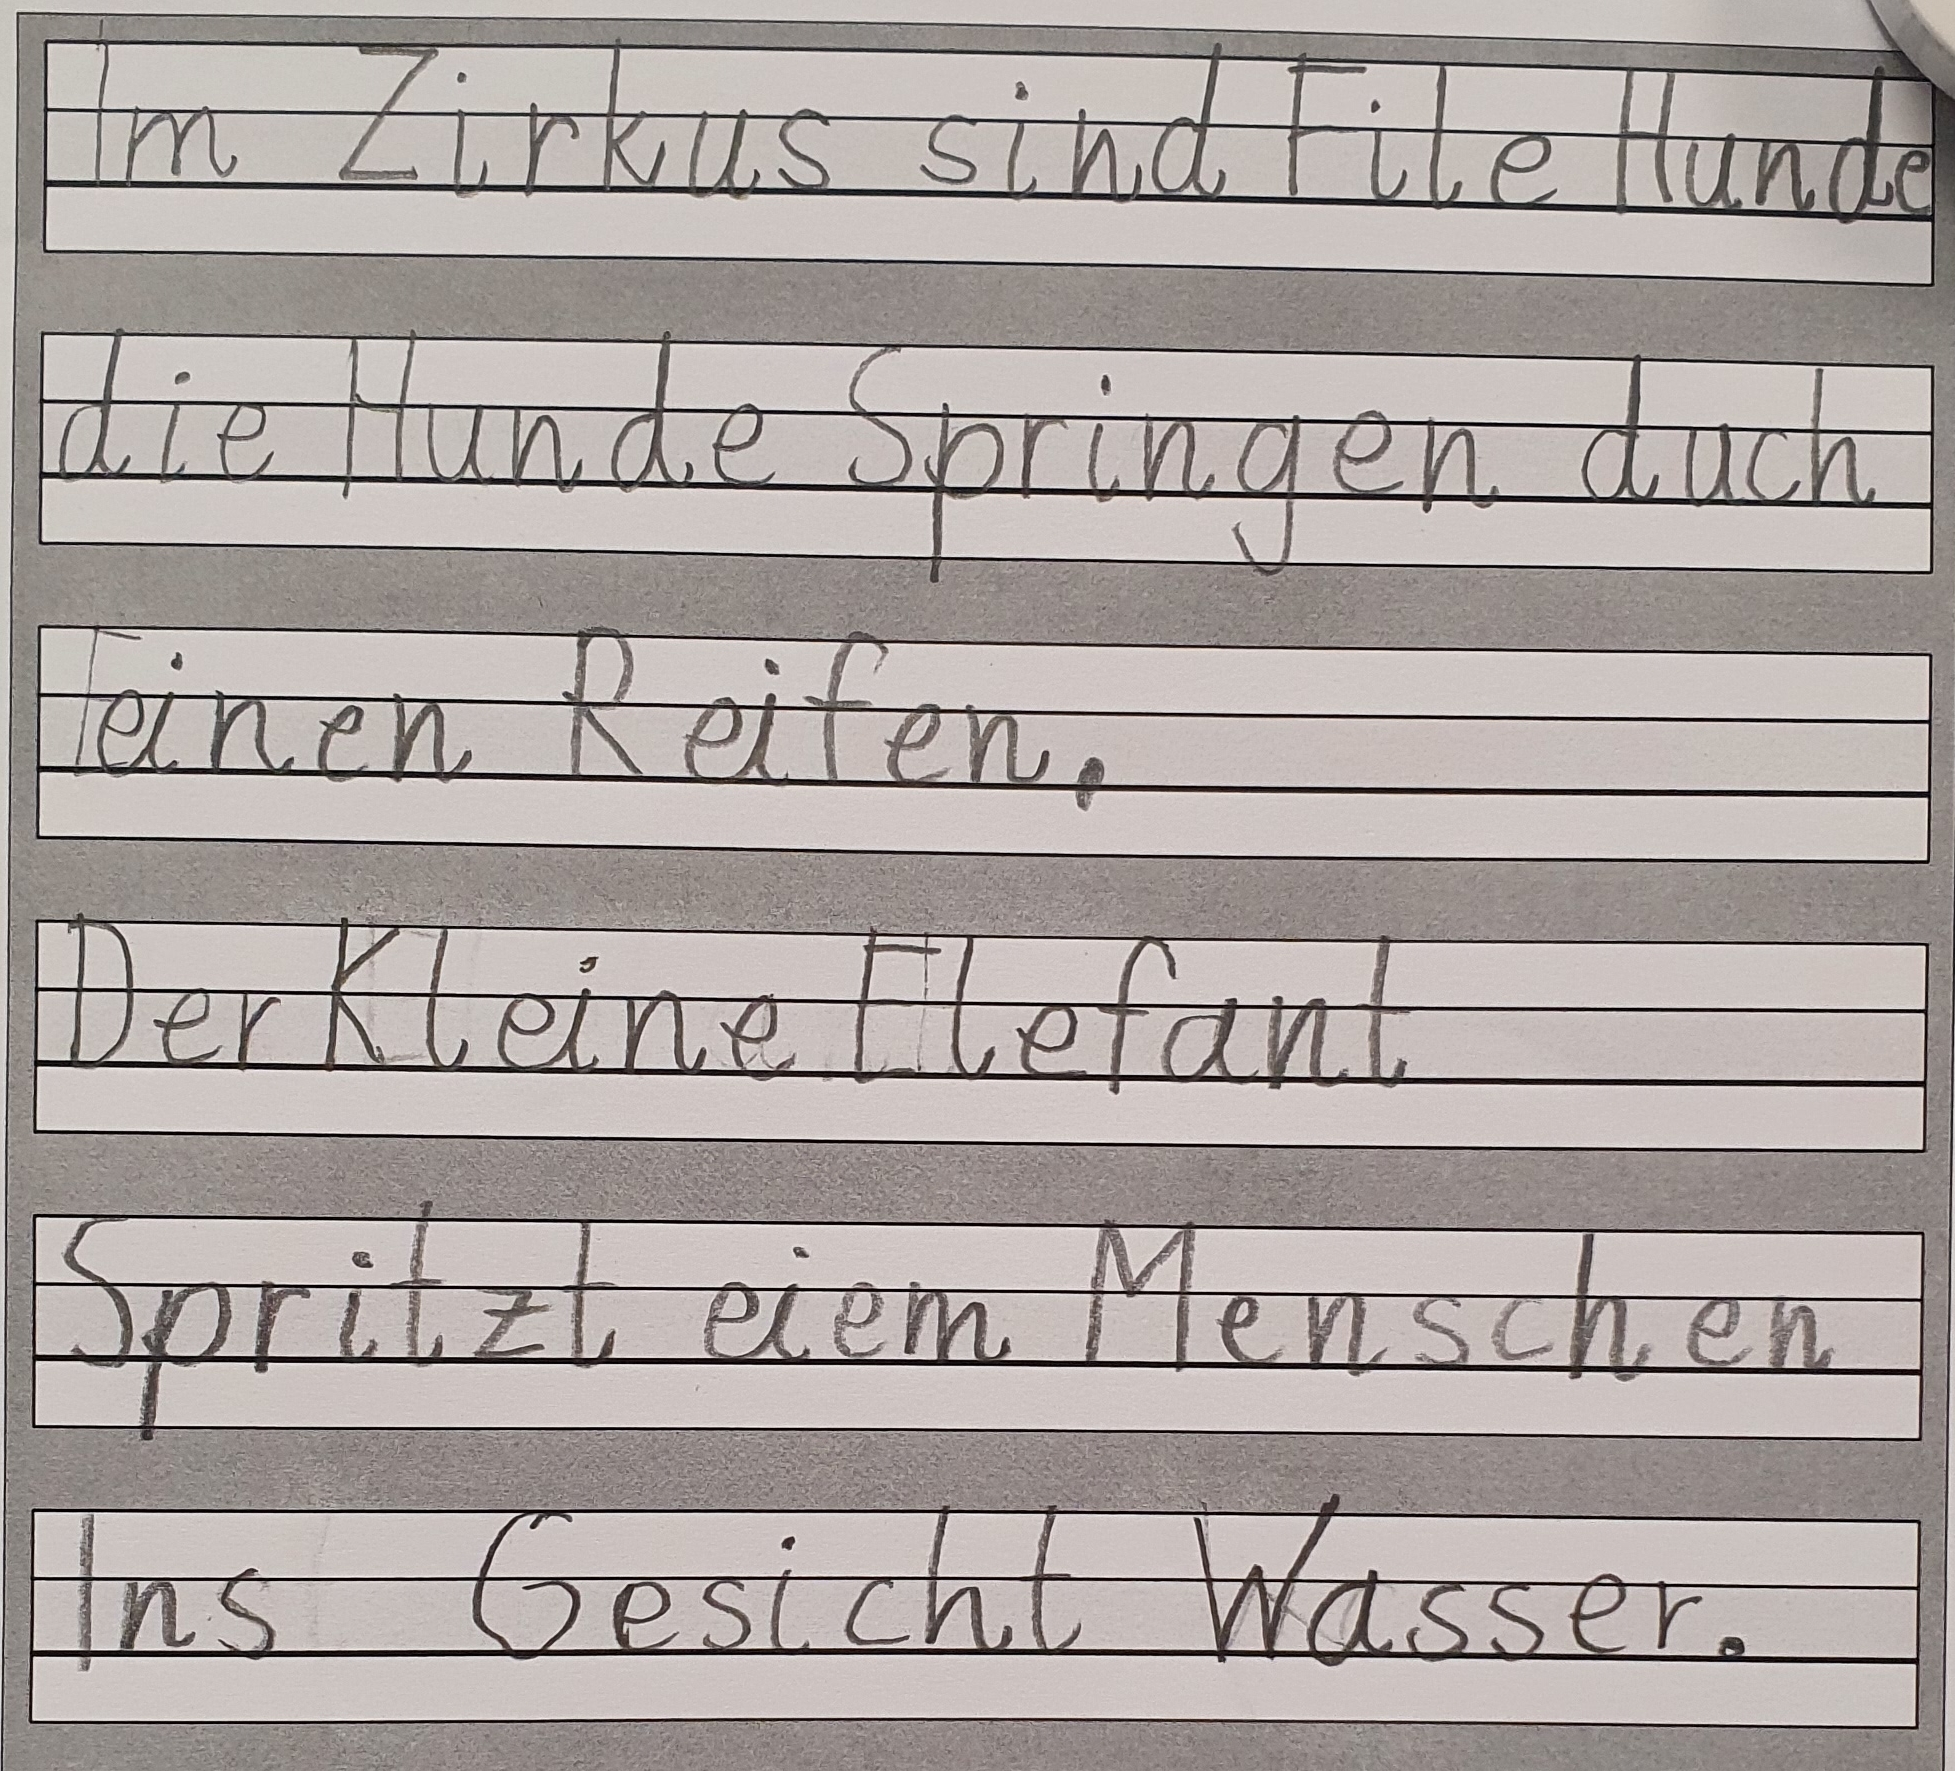 Im Zirkus sind File Hunde
die Hunde Springen duch
einen Reifen.
Der Kleine Elefant
Spritzt eiem Menschen
Ins Gesicht Wasser.